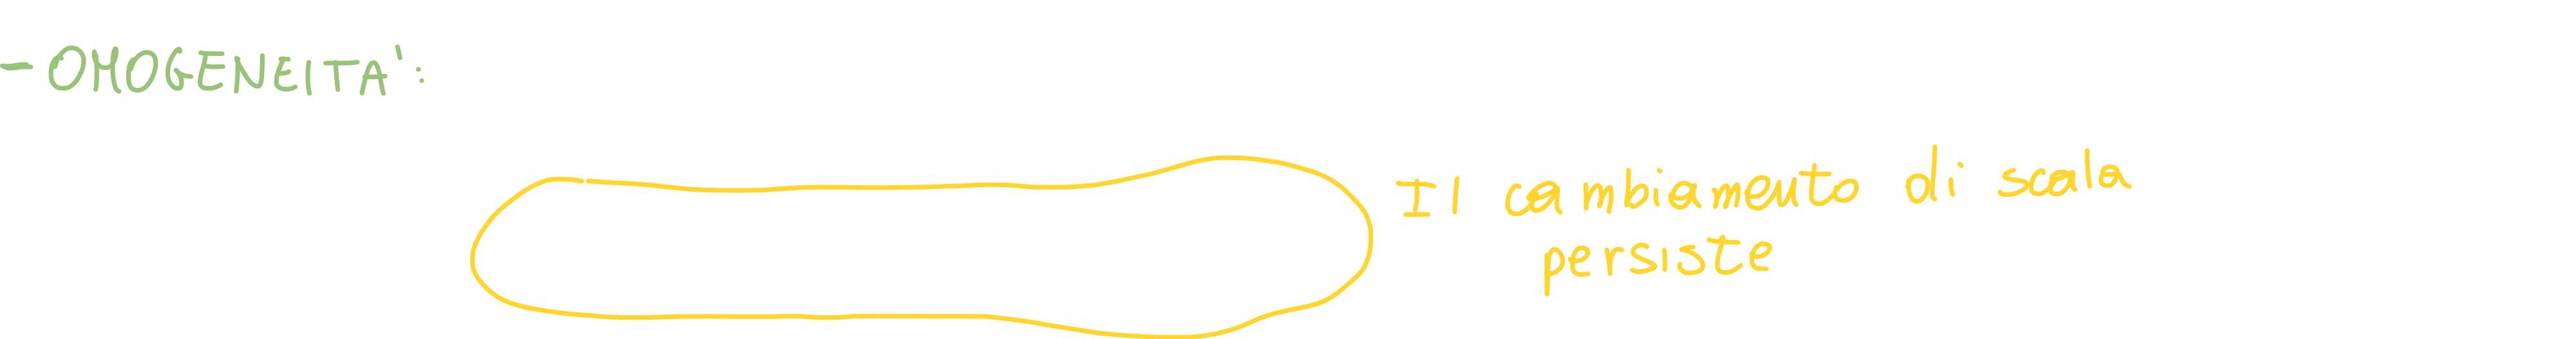 - OMOGENEITA':
Il cambiamento di scala
persiste